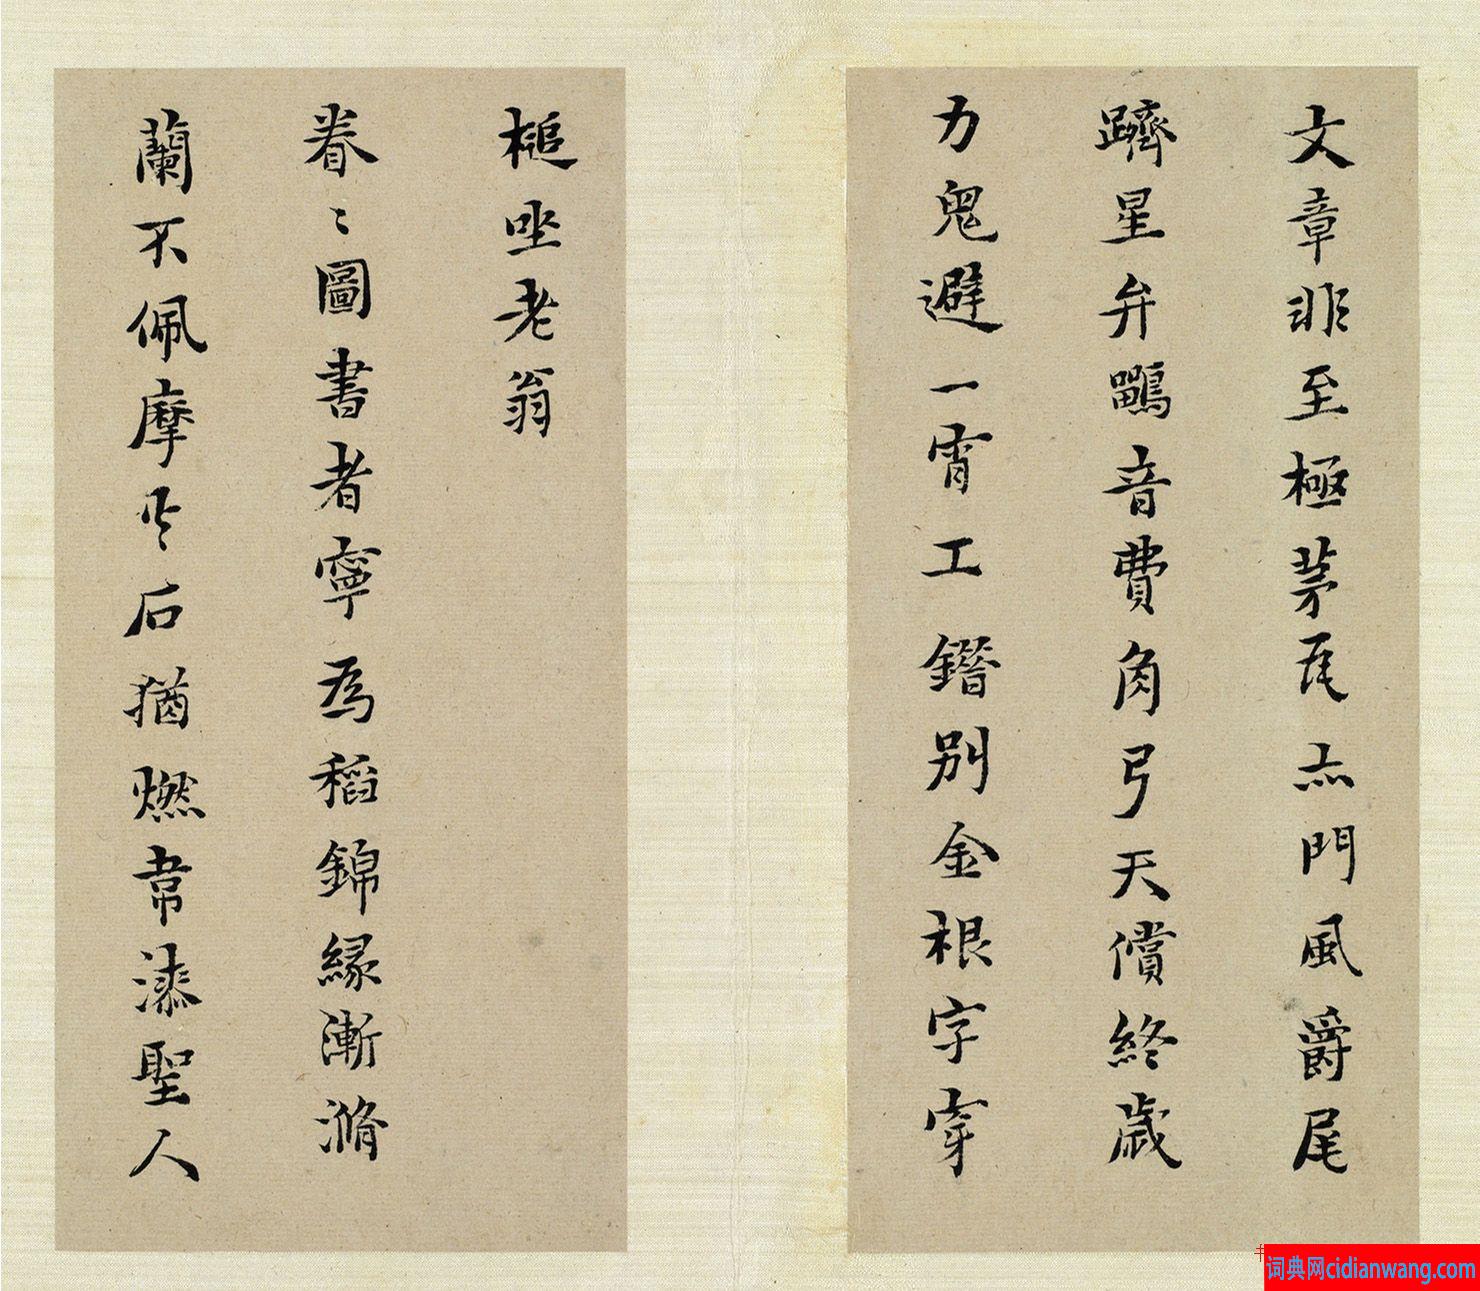 文章非至極茅瓦亦門風爵尾
躋星弁鸓音費角弓天償終歲
力鬼避一宵工鐕別金根字穿
槌坐老翁
眷〻圖書者寧為稻錦緣漸滫
蘭不佩摩兮后猶燃韋漆聖人
词典网cidianwang.com